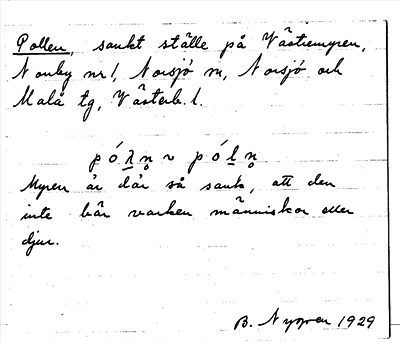 Pollen, sankt ställe på Västremyren,
Norsjö sn, Norsjö och
Malå tg, Västerb. l.
pó́λn̥ ~ póln̥
Myren är där så sank, att den
inte bär varken människor eller
djur.
B. Nygren 1929